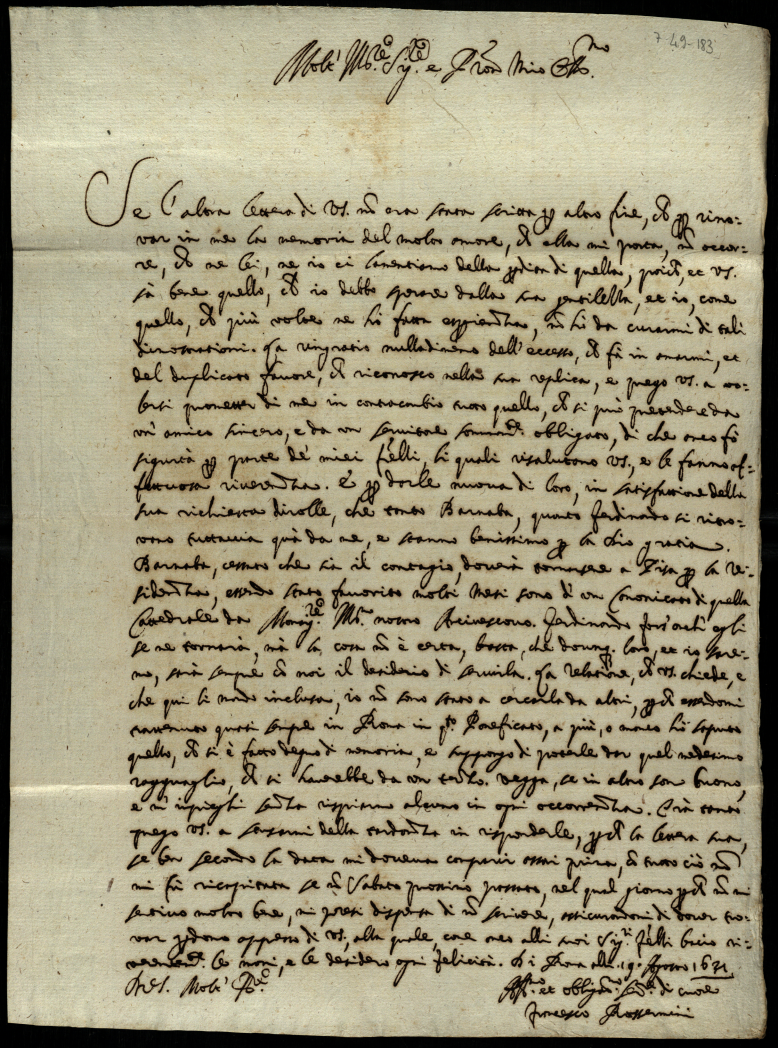 7-49-183
Molt' Ill.re Sig.re e P.ron mio Oss.mo
Se l'altra lettera di VS. nõ era stata scritta p altro fine, ch p rino-
var in me la memoria del molto amore, ch ella mi porta, nõ occor-
re, ch ne lei, ne io ci lamentiamo della pdita di quella, poich, et VS.
sà bene quello, ch io debbo sperare dalla sua gentilezza, et io, come
quello, ch più volte ne hò fatta esperienza, nõ hò da curarmi di tali
dimostrationi. La ringratio nulladimeno dell'eccesso, ch fà in amarmi, et
del duplicato favore, ch riconosco nella sua replica, e prego VS. a vo-
lersi prometter di me in contracambio tutto quello, ch si può pretendere da
un amico sincero, e da un servitore obligato, di che anco fò
sigurtà p parte de miei f.lli, li quali risalutono VS., e le fanno af-
fettuosa riverenza. E p darle nuova di loro, in satisfattione della
sua richiesta dirolle, che tanto Barnaba, quanto Ferdinando si ritro-
vono tuttavia quà da me, e stanno benissimo p la Dio gratia.
Barnaba, cessato che sia il contagio, doverà tornarsene a Pisa p la re-
sidenza, essendo stato favorito molti mesi sono di un Canonicato di quella
Cattedrale da Monsig.re Ill.mo nostro Arcivescovo. Ferdinando fors'anch' egli
se ne tornarà, mà la cosa nõ è certa, basta, che doung. loro, et io sare-
mo, sarà sempre cõ noi il desiderio di servirla. La relatione, ch VS. chiede, e
che qui li mando inclusa, io nõ sono stato a cercarla da altri, pch essendomi
trattenuto quasi sempre in Roma in q.to Ponteficato, a più, o manco hò saputo
quello, ch si è fatto degno di memoria, e suppongo di poterle dar quel medesimo
ragguaglio, ch si haverebbe da un terzo. Vegga, se in altro son buono,
e m'impieghi senza risparmio alcuno in ogni occorrenza. Frà tanto
prego VS. a scusarmi della tardanza in risponderle, pch la lettera sua,
se ben secondo la data mi doveva comparir assai prima, cõ tutto ciò nõ
mi fù ricapitata se nõ Sabato prossimo passato, nel qual giorno pch nõ mi
sentivo molto bene, mi presi dispensa di nõ scrivere, assicurandomi di dover tro-
var pdono appresso di VS., alla quale, come anco alli suoi Sig.ri f.lli bacio ri-
verentem. le mani, e le desidero ogni felicità. Di Roma alli 9. Agosto 1631
Di VS. Molt' Ill.re
Aff.mo et obligat.mo Ser.re di cuore
Francesco Rossermini